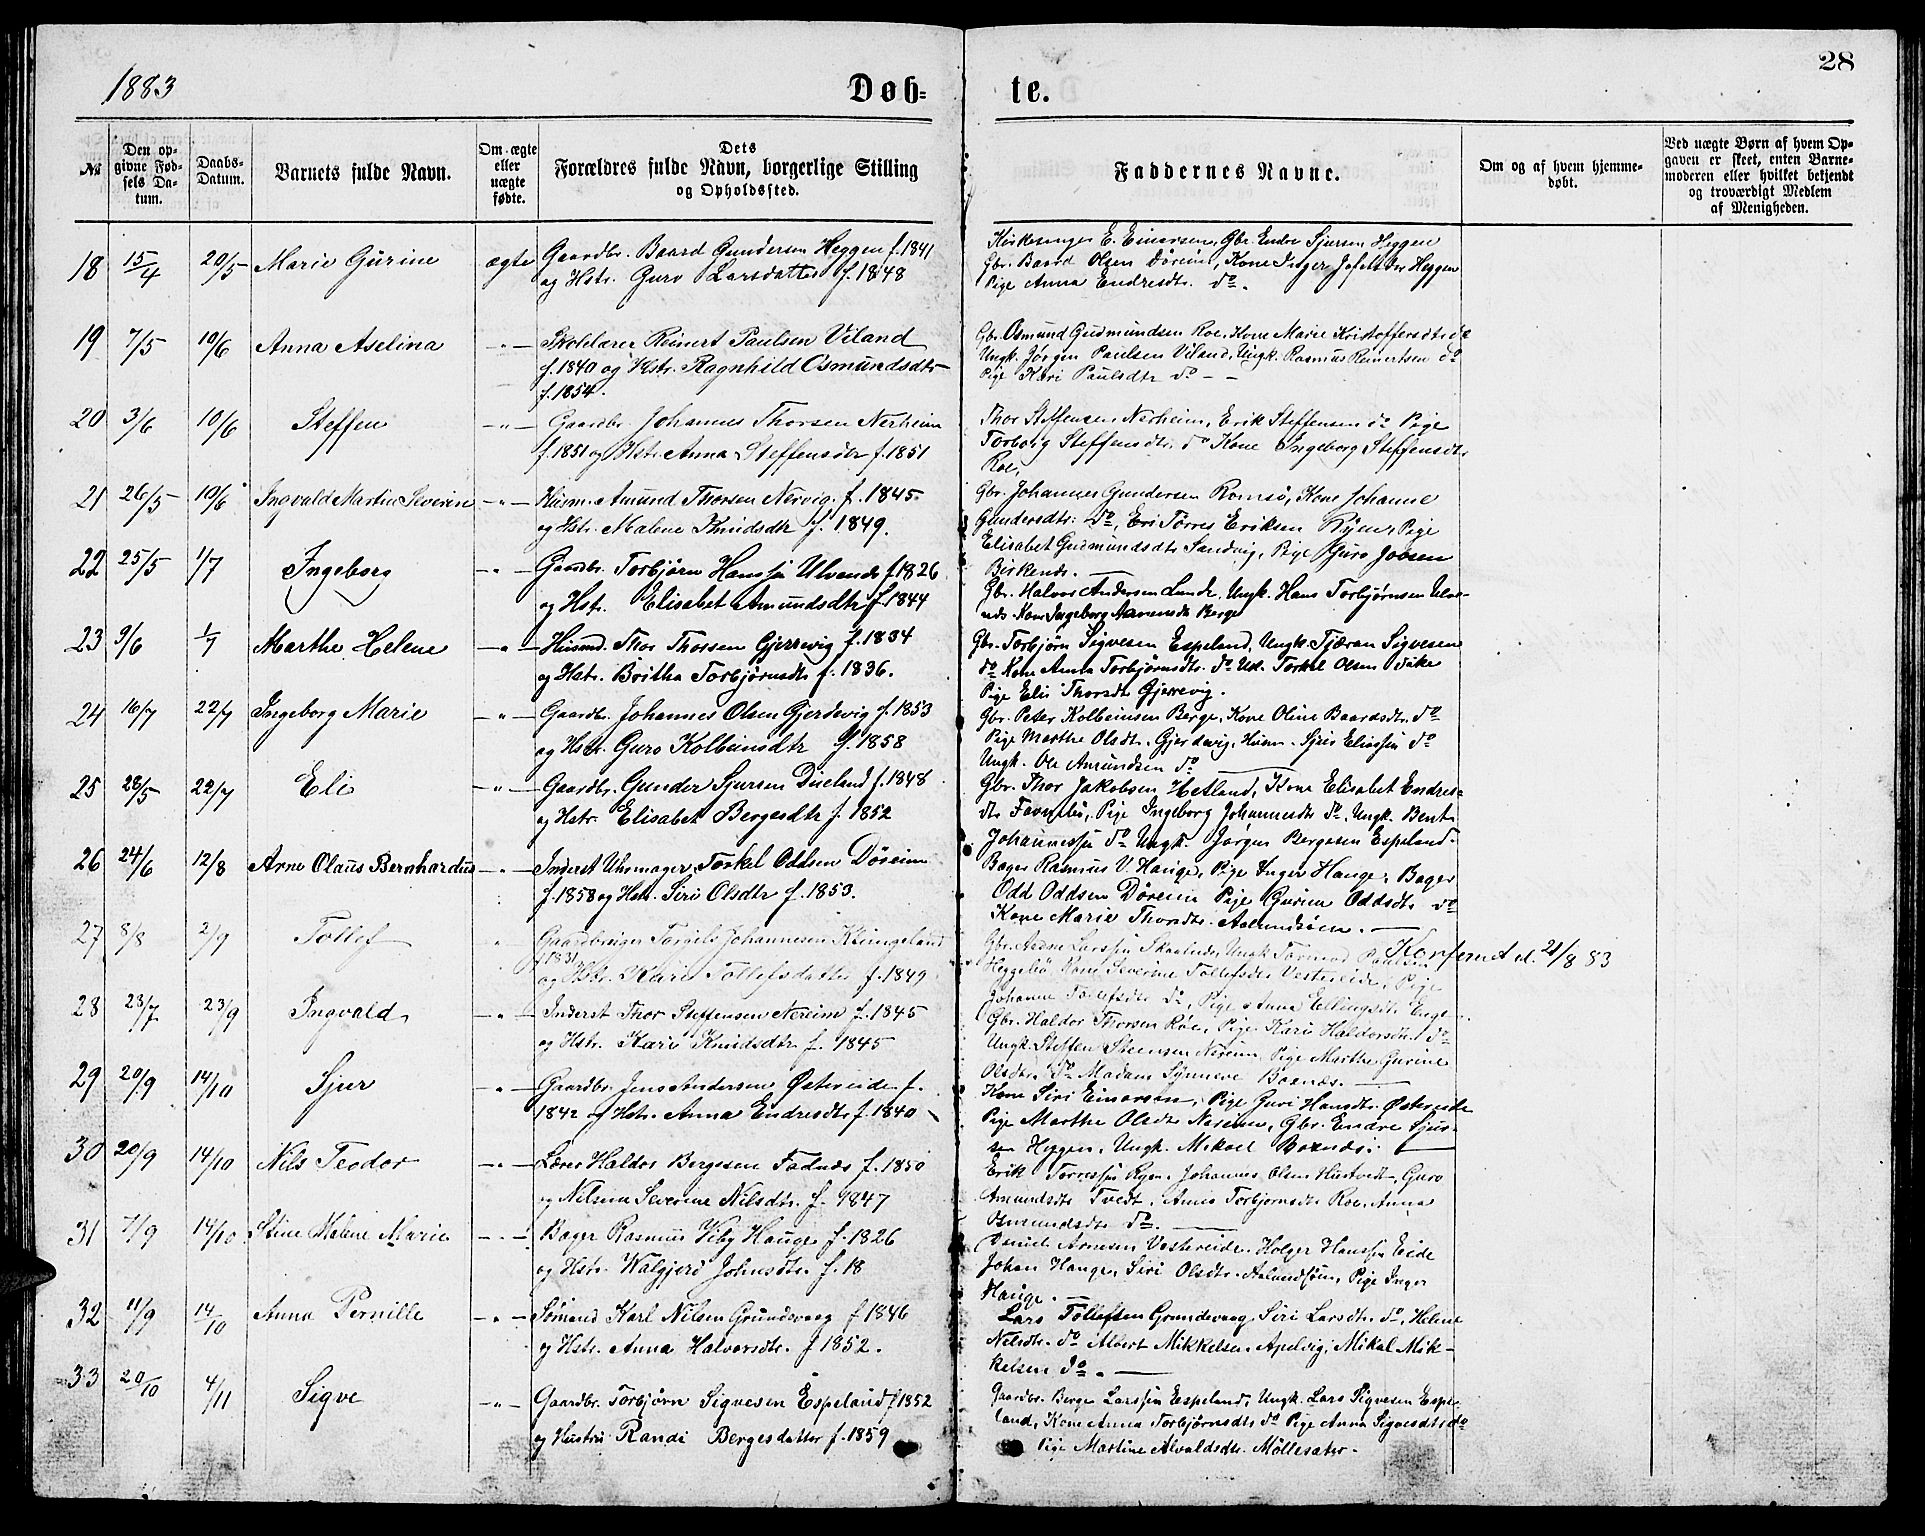 1883
Døb=
te.
28
№
Den op-
givne Fød-
sels Da-
tum.
Daabs-
Datum.
Barnets fulde Navn.
Om ægte
eller
uægte
fødte.
Dets
Forældres fulde Navn, borgerlige Stilling
og Opholdssted.
Faddernes Navne.
Om og af hvem hjemme-
døbt.
Ved uægte Børn af hvem Op-
gaven er skeet, enten Barne-
moderen eller hvilket bekjendt
og troværdigt Medlem
af Menigheden.
18 15/4 20/5 Marie Gurine ægte Gaardbr. Baard Gundersen Heggen f. 1841
og Hstr. Guro Larsdatter f. 1848
Kirkesanger E. Einarsen, Gbr. Endre Sjursen Heggen
Gbr. Baard Olsen Døreim, Kone Inger Heggen
Pige Anna Endresdtr. do.
19 7/5 10/6 Anna Aselina -"- Skolelærer Reinert Paulsen Viland
f. 1840 og Hstr. Ragnhild Osmundsdtr
f. 1854.
Gbr. Osmund Gudmundsen Roe, Kone Marie Kristoffersdtr do
Ungk. Jørgen Paulsen Viland, Ungk. Rasmus Reinertsen do
Pige Kari Paulsdtr do - -
20 3/6 10/6 Steffen -"- Gaardbr. Johannes Thorsen Nerheim
f. 1851 og Hstr. Anna Steffensdtr f. 1851
Thor Steffensen Nerheim, Erik Steffensen do Pige
Torborg Steffensdtr. do Kone Ingeborg Steffensdtr
Roe,
21 26/5 10/6 Ingvald Martin Severin -"- Husm. Amund Thorsen Nervig f. 1845
og Hstr. Malene Knudsdtr f. 1849.
Gbr. Johannes Gundersen Romsø, Kone Johanne
Gundersdtr: do, Torres Eriksen Ryen, Pige
Elisabet Gudmundsdtr Sandvig, Pige Guro Joosen
Birkenes. —
22 25/5 1/7 Ingeborg -"- Gaardbr. Torbjørn Hanssen Ulvenes f. 1826
og Hstr. Elisabet Amundsdtr f. 1844
Gbr. Halvor Andersen Lunde, Ungk. Hans Torbjørnsen Ulve-
nes Kone Ingeborg Berge
23 9/6 1/7 Marthe Helene -"- Husmd. Thor Thorsen Gjerrevig f. 1834
og Hstr. Britha Torbjørnsdtr f. 1836.
Gbr. Torbjørn Sigvesen Espeland, Ungk. Tjæran Sigvesen
do Kone Anna Torbjørnsdtr. do Uk. Torkel Olsen
Pige Eli Thorsdtr Gjerrevig.
24 16/7 22/7 Ingeborg Marie -"- Gaardbr. Johannes Olsen Gjerdevig f. 1853
og Hstr. Guro Kolbeinsdtr f. 1858
Gbr. Peter Kolbeinsen Berge, Kone Oline Baardsdtr. do
Pige Marthe Olsdtr. Gjerdevig, Husm. Eliassen do
Ungk. Ole Amundsen do
25 28/5 22/7 Eli -"- Gaardbr. Gunder Sjursen Dueland f. 1848
og Hstr. Elisabet Bergesdtr f. 1852
Gbr. Thor Jakobsen Hetland, Kone Elisabet Endres-
dtr. Pige Ingeborg Johannesdtr do, Ungk. Bent
Johannessen do Ungk. Jørgen Bergesen Espeland.
26 24/6 12/8 Arne Olaus Bernhardus -"- Inderst Uhrmager Torkel Oddsen Døreim
f. 1858 og Hstr. Siri Olsdtr f. 1853.
Bager Rasmus V. Hauge, Pige Inger Hauge, Bager
Odd Oddsen Døreim Pige Gurine Oddsdtr do
Kone Marie Thorsdtr. Aalundsøen. —
27 8/8 2/9 Tollef " Gaardbruger Torgils Johannesen Kringeland
f 1831
og Hstr. Kari Tollefsdatter f. 1849
Gbr. Larssen Skaalnes, Ungk. Tormod Paulsen
Heggebø, Kone Severine Tollefsdtr Vestereide, Pige
Johanne Tollefsdtr do, Pige Anna Ellingsdtr Enge
Konferert d. 21/8 83
28 23/7 23/9 Ingvald -"- Inderst Thor Steffensen Nereim f. 1845
og Hstr. Kari Knudsdtr f. 1845
Gbr. Haldor Thorsen Røe, Pige Kari Haldorsdtr do
Ungk. Steffen Steensen Nereim, Pige Marthe Gurine
Olsdtr. do Madam Synneve Boenæs. —
29 20/9 14/10 Sjur " Gaardbr. Jens Andersen Østereide f.
1842 og Hstr. Anna Endresdtr f. 1840
Kone Siri Einarsen, Pige Guri Hansdtr Østereide
Pige Marthe Olsdtr Nereim, Gbr. Endre Sjur-
sen Heggen, Ungk. Mikael Boenæs. —
30 20/9 14/10 Nils Teodor -"- Lærer Haldor Bergesen Fadnæs f. 1850
og Nilsina Severine Nilsdtr. f. 1847
Erik Torressen Ryen, Johannes Olsen Hustvedt, Guro
Amundsdtr Tvedt, Anna Torbjørnsdtr Roe, Anna
Osmundsdtr do. —
31 7/9 14/10 Stine Malene Marie -"- Bager Rasmus Viby Hauge f. 1826
og Hstr. Walgjerd Johnsdtr. f. 18
Arnesen Vestereide, Holger Hanssen Eide
Johan Hauge, Siri Olsdtr. Aalundsøen, Pige Inger
Hauge. —
32 11/9 14/10 Anna Pernille -"- Sømand Karl Nilsen Grundevaag f 1846
og Hstr. Anna Halvorsdtr. f 1852.
Lars Tollefsen Grundevaag, Siri Larsdtr. do, Helene
Nilsdtr. do Albert Mikkelsen Apelvig, Mikal Mik-
kelsen do. —
33 20/10 4/11 Sigve -"- Gaardbr. Torbjørn Sigvesen Espeland f 1852
og Hustru Randi Bergesdatter f. 1859
Gaardbr. Berge Larssen Espeland, Ungk. Lars Sigvesen Espe-
land, Kone Anna Torbjørnsdtr do Pige Anna Sigvesdtr do
Pige Martine Alvaldsdtr. Møllesæter.